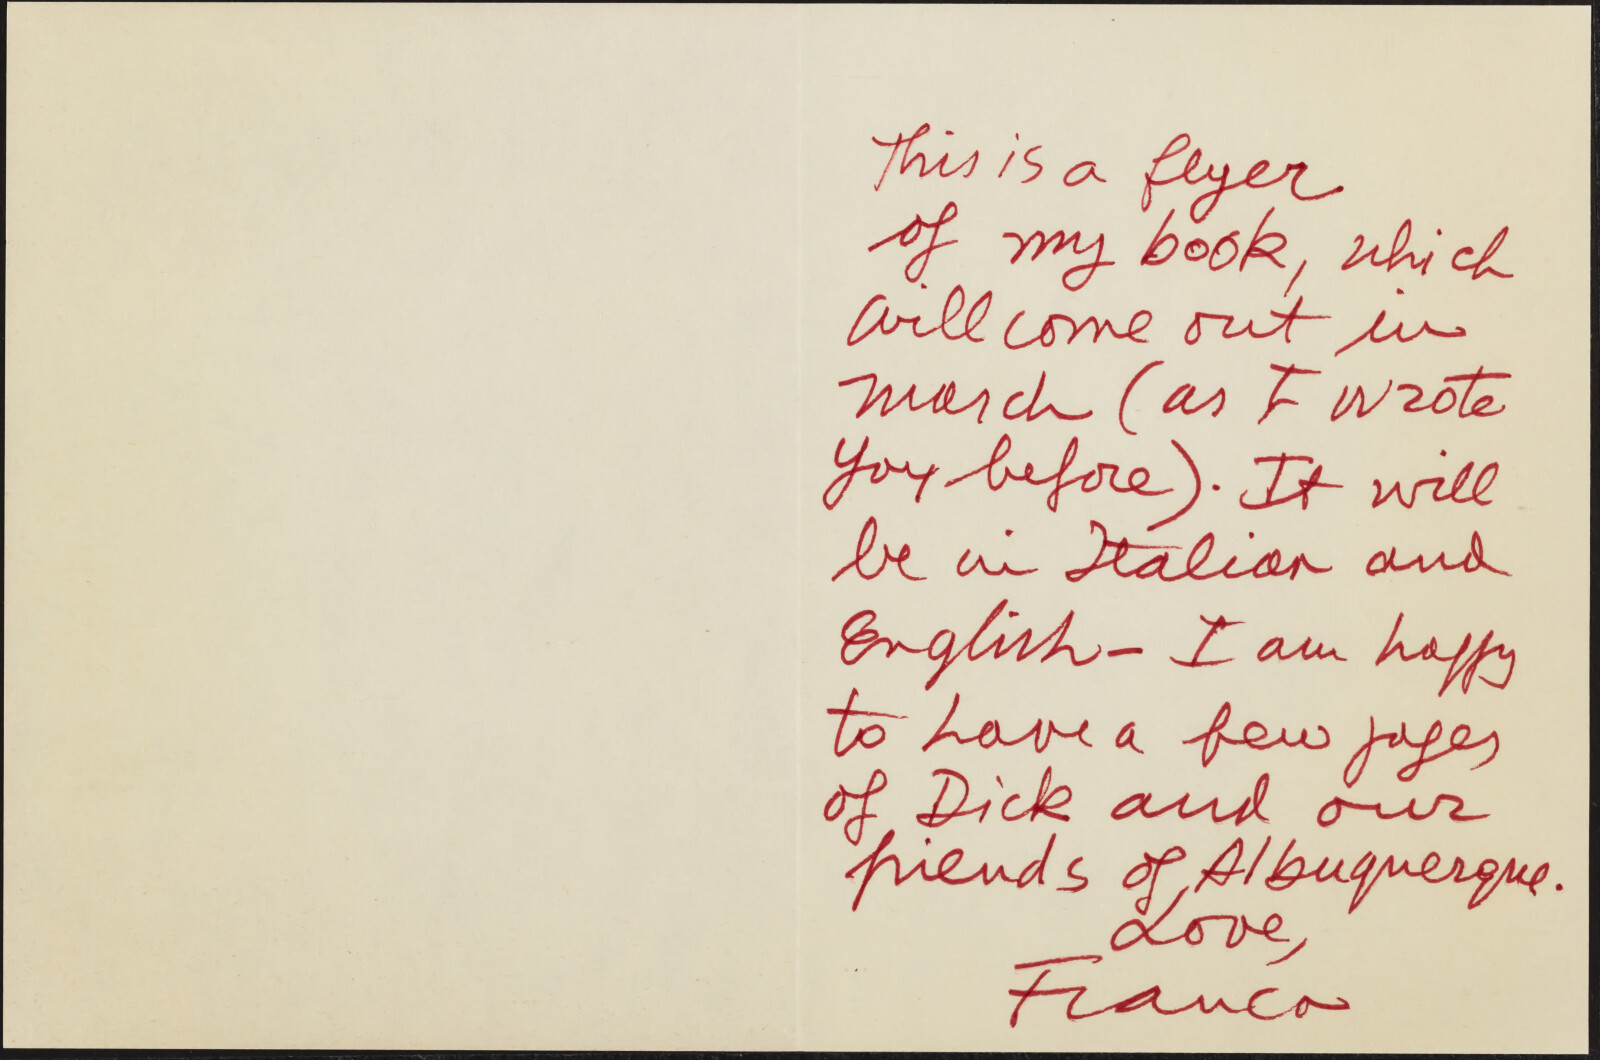 This is a flyer
of my book, which
will come out in
March (as I wrote
you before). It will
be in Italian and
English – I am happy
to have a few pages
of Dick and our
friends of Albuquerque.
Love,
Franco